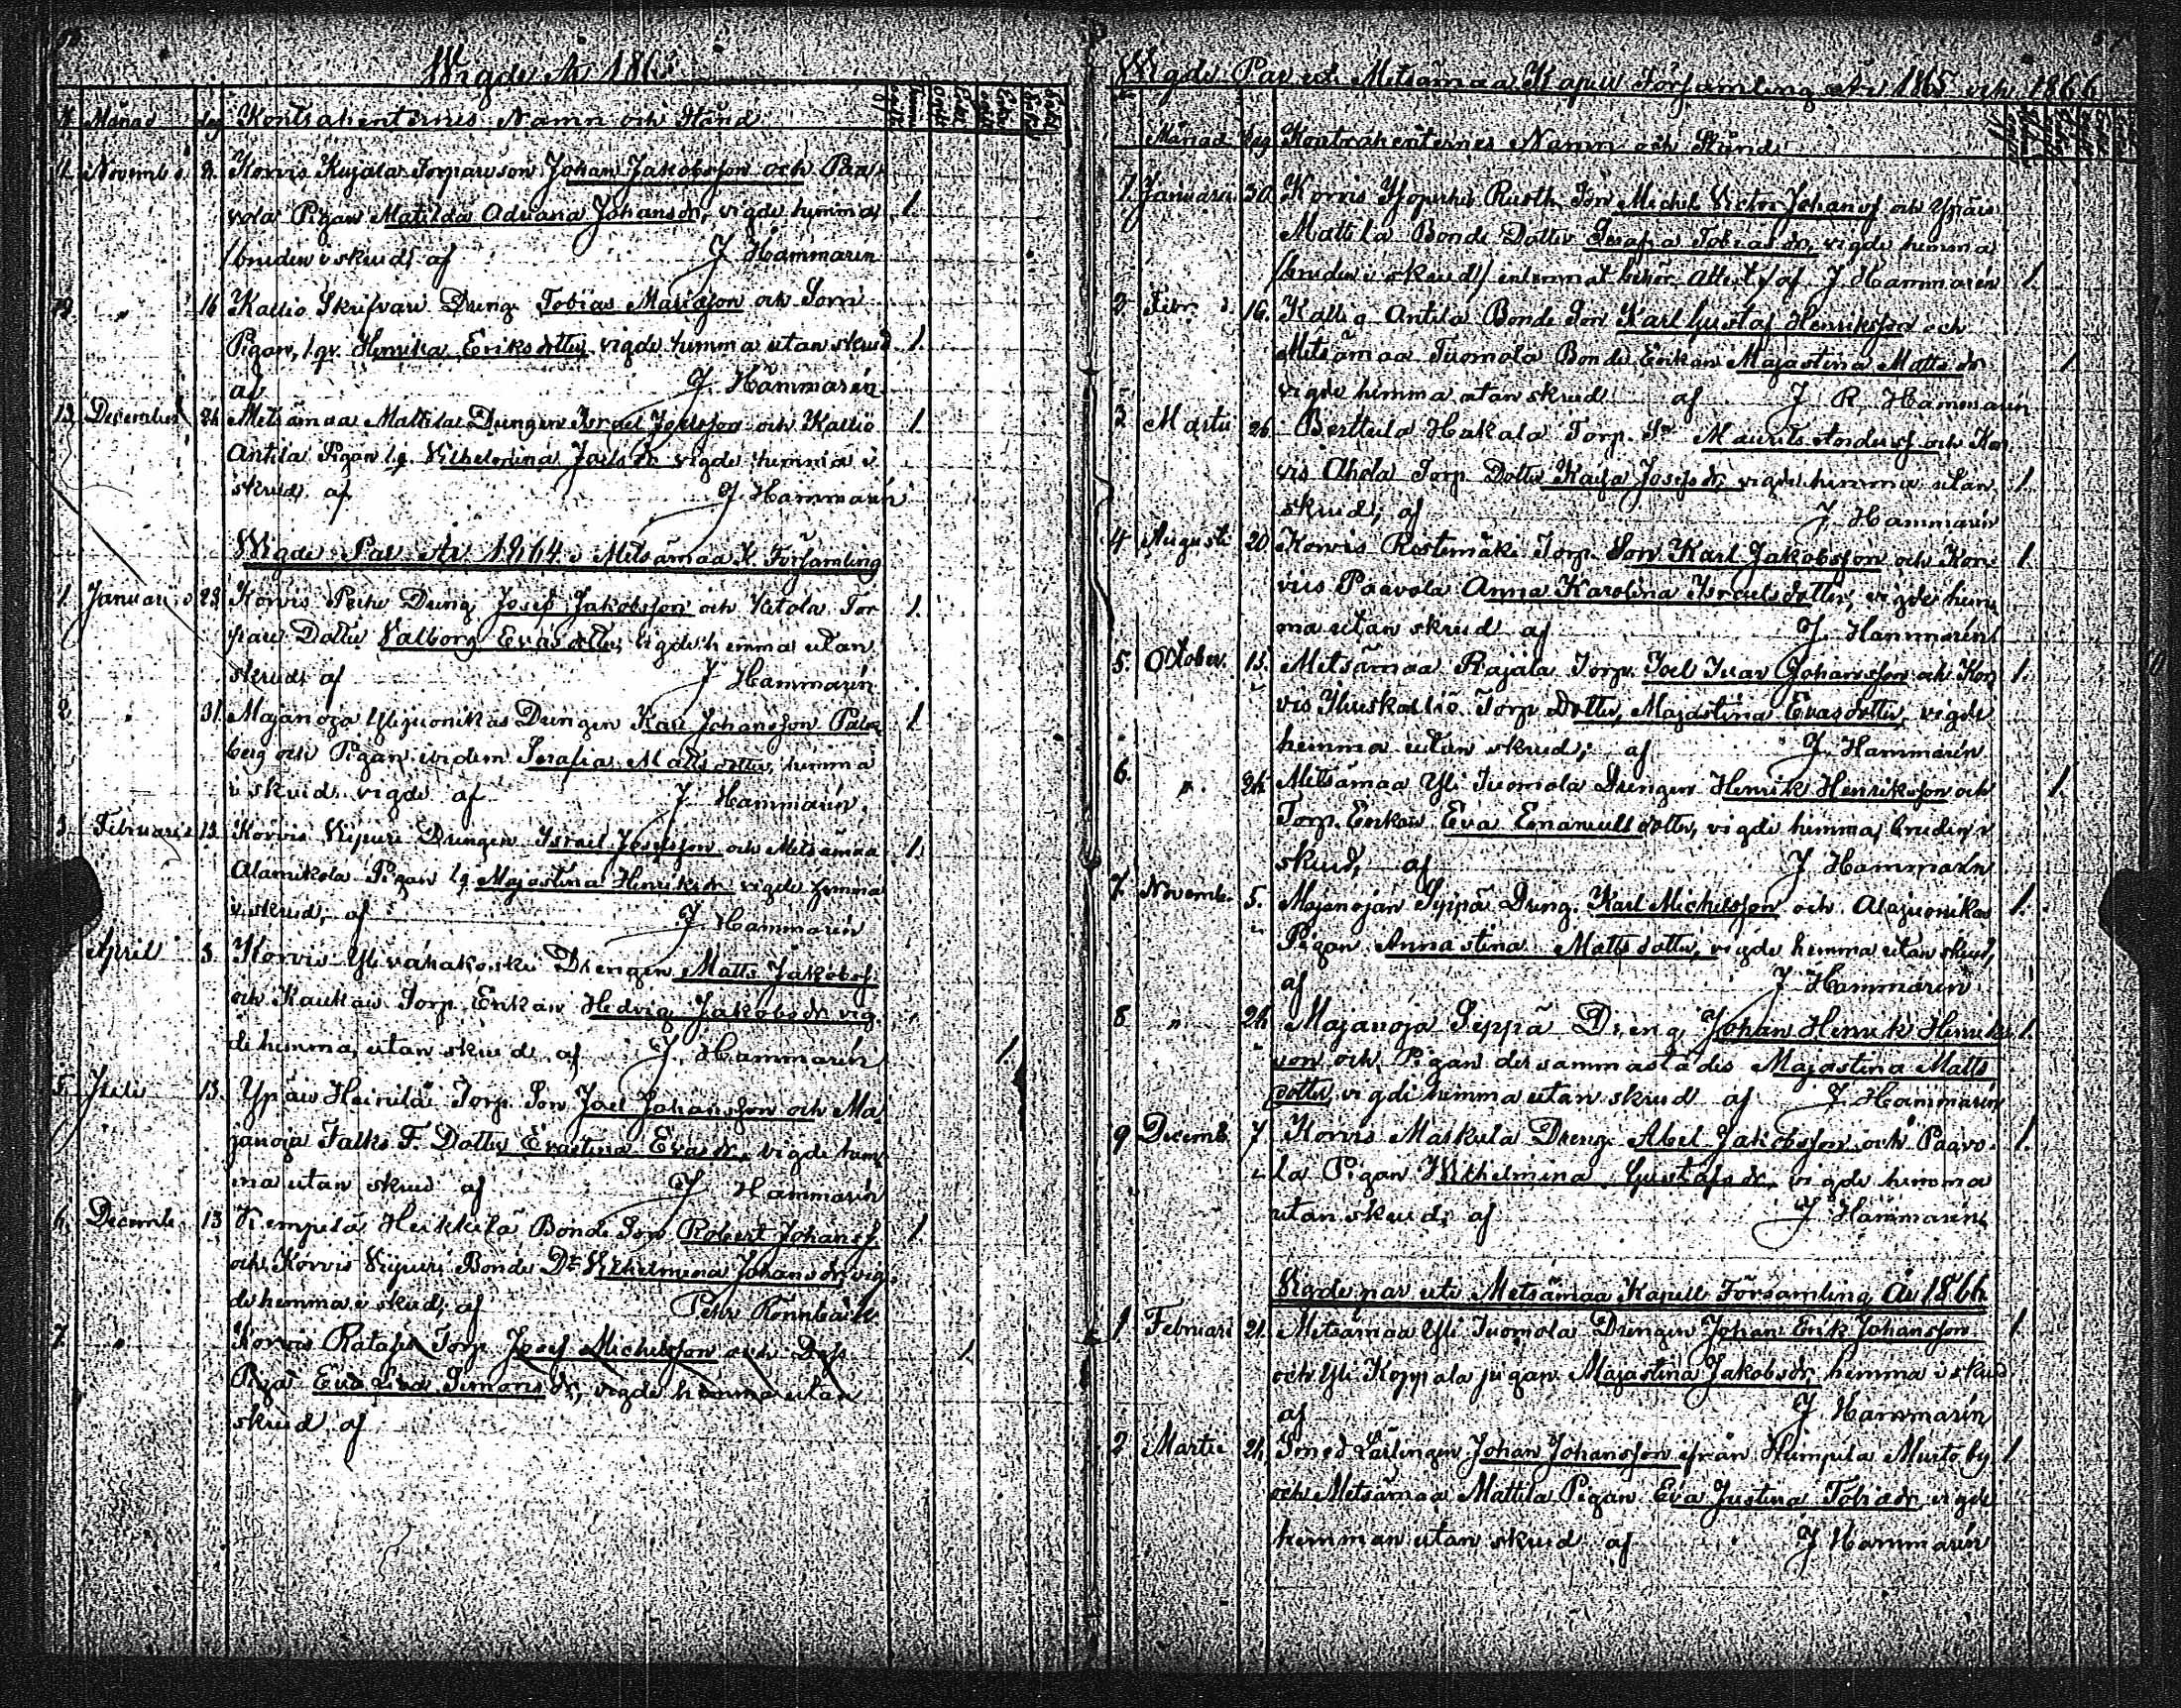 Wigde År 1863
N Månad dag Kontrahenternes Namn och Stånd
11. Novemb. 8. Korvis Kujala Torpareson Johan Jakobsson och Paa-
vola Pigan Matilda Adriana Johansdr, vigde hemma 1.
/bruden i skrud/ af J Hammarén
12. " 16 Kallio Skrifvare Dreng Tobias Mariasson och
Pigan, lgr Henrika Eriksdotter vigde hemma utan skrud 1.
af J. Hammarén
13. December 26 Metsämaa Mattila Drengen Israel Joelsson och Kallio 1.
Antila Pigan lg. Vilhelmina Joelsdr vigde hemma i
skrud af J Hammarén
Wigde Par År 1864 i Metsämaa K. Församling
1. Januarii 23. Korvis Pehr Dreng Josef Jakobsson och Tor- 1.
pare Dotter Valborg Evasdotter, vigde hemma utan
skrud, af J Hammarén
2. " 31. Majanoja Ylijuonikas Drengen Karl Johansson Palm- 1
berg och Pigan Serafia Mattsdotter, hemma
i skrud vigde af J Hammarén.
3. Februarii 13. Korvis Vipuri Drengen Israel Josefsson och Metsämaa 1.
Alamikola Pigan lg Majastina Henriksdr vigde hemma
i skrud, af J. Hammarén
April 3. Korvis Yli vähakoski Drengen Matts Jakobsf.
och Kaukan Torp. Enkan Hedvig Jakobsdr vig-
de hemma, utan skrud af J. Hammarén 1.
5. Julii 13. Ypäis Heinilä Torp. Son Joel Johansson och Ma-
janoja Talks T. Dotter Evastina Evasdr, vigde hem-
ma utan skrud af J Hammarén
6. Decemb. 13 Kempilä Heikkilä Bonde Son Robert Johansf. 1.
och Korvis Vipuri Bonde Dr Vilhelmina Johansdr, vig-
de hemma i skrud; af Pehr Rönnbäck
7. " Korvis Torp. Josef Michelsson och Dess 1.
Piga Eva Lisa Simonsdr, vigde hemma utan
skrud af
Wigde Par uti Metsämaa Kapell Församling År 1865 och 1866
Månad dag Kontrahenternes Namn och Stånd
1. Januarii 30. Korvis Rusth. Son Michel Victor Johansf och Ypäis
Mattila Bonde Dotter Serafia Tobiasdr, vigde hemma
/bruden i skrud/ inlemnat behör. Attest/ af J Hammarén 1.
2. Febr. 16. Kallio Antila Bonde Son Karl Gustaf Henriksson och
Metsämaa Tuomola Bonde Enkan Majastina Mattsdr 1
vigde hemma utan skrud af J R Hammarén
3 Martii 26 Berttula Hakala Torp. Sn Maurits och Kor-
vis Ahola Torp Dotter Kajsa Josefsdr, vigde hemma utan 1.
skrud, af J Hammarén
4 Augusti 20 Korvis Rostemäki Torp. Son Karl Jakobsson och Kor- 1.
vis Paavola Anna Karolina Israelsdotter, vigde hem-
ma utan skrud af J. Hammarén
5. October. 15. Metsämaa Rajala Torp. Joel Ivar Johansson och Kor- 1.
vis Torp Dotter, Majastina Evasdotter, vigde
hemma utan skrud; af J. Hammarén
6. " 24 Metsämaa Yli Tuomola Drengen Henrik Henriksson och 1.
Torp. Enkan Eva Emanuelsdotter, vigde hemma, bruden i
skrud, af J Hammarén
7. Novemb. 5. Majanojan Seppä Dreng. Karl Michelsson och Alajuonikas 1.
Pigan Annastina Mattsdotter, vigde hemma utan skrud,
af J Hammarén
8 " 24 Majanoja Seppä Dreng, Johan Henrik Henriks- 1.
son och Pigan dersammastädes Majastina Matts-
dotter, vigde hemma utan skrud af J. Hammarén
9 Decemb. 7 Korvis Maskula Dreng Abel Jakobsson och Paavo- 1.
la Pigan Wilhelmina Gustafsdr, vigde hemma
utan skrud; af J Hammarén
Wigde par uti Metsämaa Kapell Församling År 1866
1 Februari 21. Metsämaa Yli Tuomola Drengen Johan Erik Johansson 1
och Yli Koppala pigan Majastina Jakobsdr, hemma i skrud
af J Hammarén
2 Martii 24. Smed Lärlingen Johan Johansson ifrån Humpila Murto by 1
och Metsämaa Mattila Pigan Eva Justina Tobiasdr, vigde
hemman utan skrud af J Hammarén